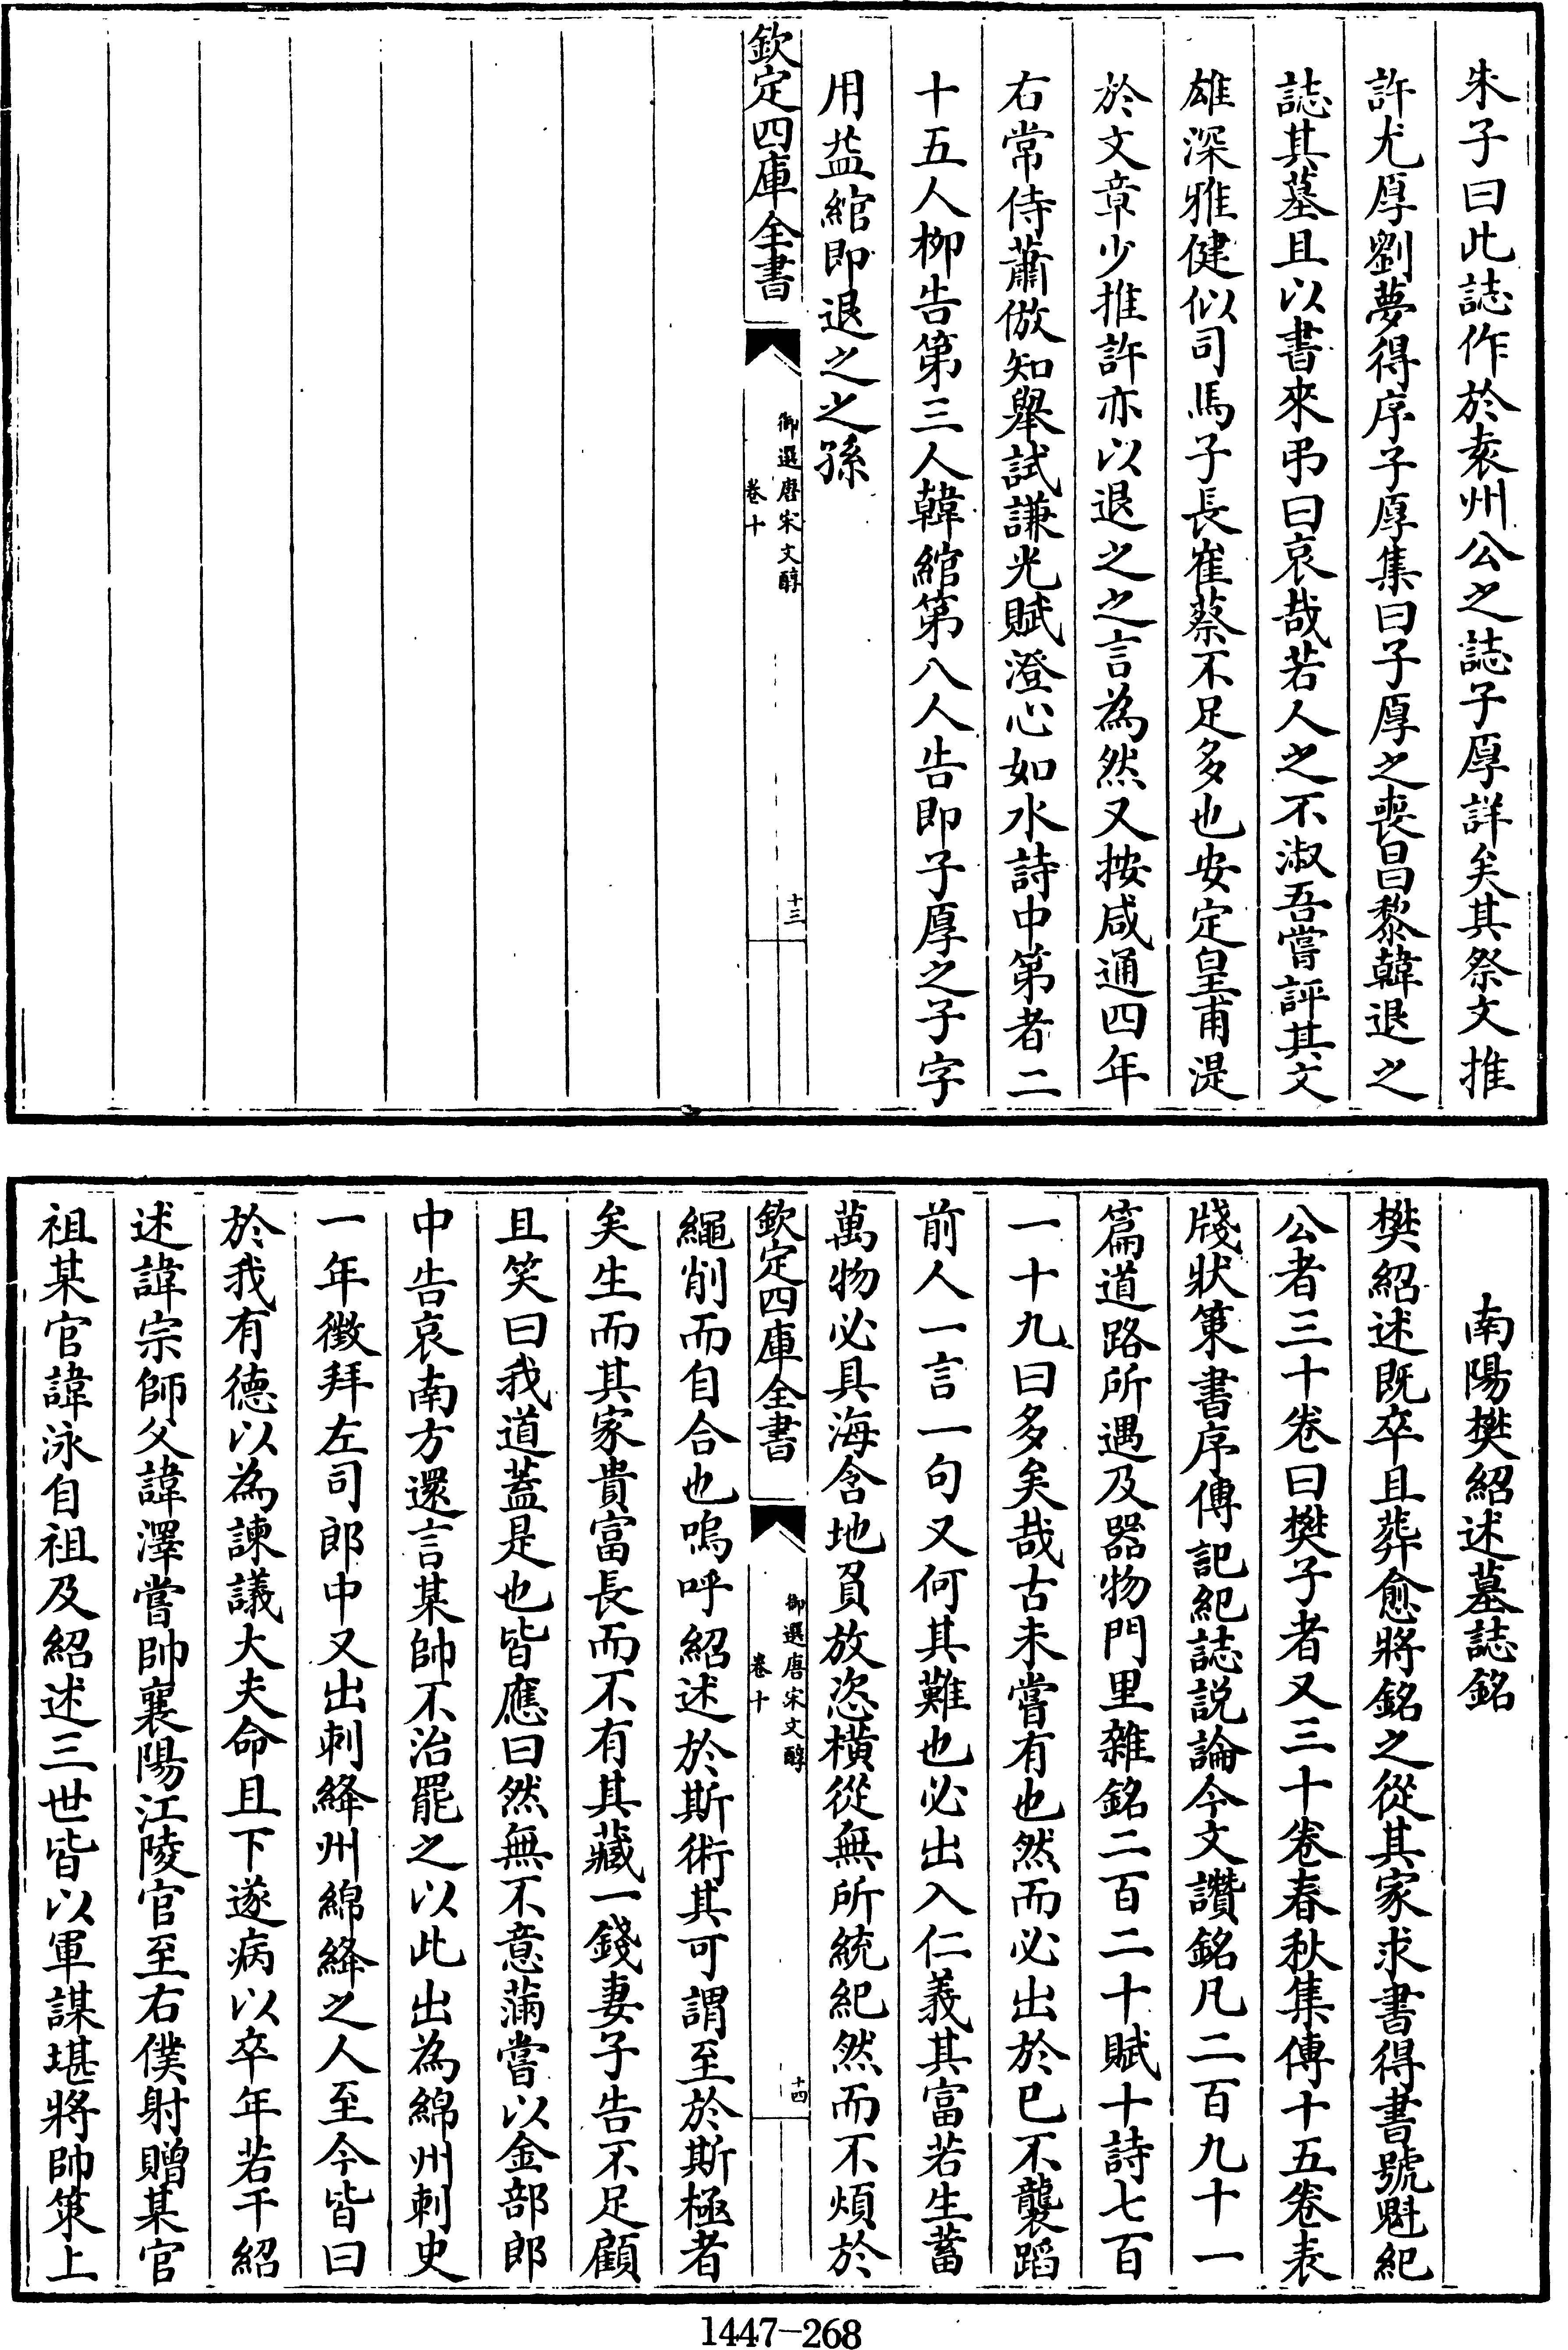 朱子曰此誌作於袁州公之誌子厚詳矣其祭文推
許尤厚劉夢得序子厚集曰子厚之喪昌黎韓退之
誌其墓且以書來弔曰哀哉若人之不淑吾嘗評其文
雄深雅健似司馬子長崔蔡不足多也安定皇甫湜
於文章少推許亦以退之之言為然又按咸通四年
右常侍蕭倣知舉試謙光賦澄心如水詩中第者二
十五人栁告第三人韓綰第八人告即子厚之子字
用益綰即退之之孫
欽定四庫全書
御選唐宋文醇
卷十
十三
南陽樊紹述墓誌銘
樊紹述既卒且葬愈將銘之從其家求書得書號魁紀
公者三十卷曰樊子者又三十卷春秋集傳十五卷表
牋狀策書序傳記紀誌説論今文讚銘凡二百九十一
篇道路所遇及器物門里雜銘二百二十賦十詩七百
一十九曰多矣哉古未嘗有也然而必出於巳不襲蹈
前人一言一句又何其難也必出入仁義其富若生蓄
萬物必具海含地負放恣橫從無所統紀然而不煩於
欽定四庫全書
御選唐宋文醇
卷十
十四
繩削而自合也嗚呼紹述於斯術其可謂至於斯極者
矣生而其家貴富長而不有其藏一錢妻子告不足顧
且笑曰我道蓋是也皆應曰然無不意滿嘗以金部郎
中告哀南方還言某帥不治罷之以此出為綿州刺史
一年徵拜左司郎中又出刺絳州綿絳之人至今皆曰
於我有德以為諫議大夫命且下遂病以卒年若干紹
述諱宗師父諱澤嘗帥襄陽江陵官至右僕射贈某官
祖某官諱泳自祖及紹述三世皆以軍謀堪將帥策上
1447-268